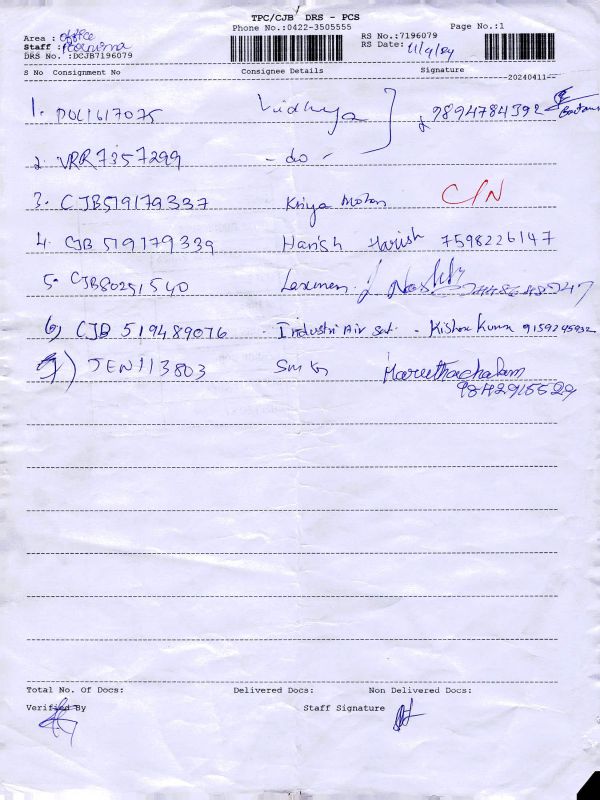 TPC/CJB DRS - PCS
Phone No.:0422-3505555 Page No.:1
Area : office RS No.:7196079
Staff : Poornima RS Date: 11/4/24
DRS No. :DCJB7196079
S No Consignment No Consignee Details Signature
20240411
1. POL1617075 Vidhya 9894784392
2. VRR7357299 - do -
3. CJB519179337 Kriya Mohan C/N
4. CJB 519179339 Harish Harish 7598226147
5. CJB80251540 Laxmen
6) CJB 519489076 - Industri Air sat. - Kishor Kumar 9159245932
7) JEN113803 Maruthachalam
9842915529
Total No. Of Docs: Delivered Docs: Non Delivered Docs:
Verified By Staff Signature